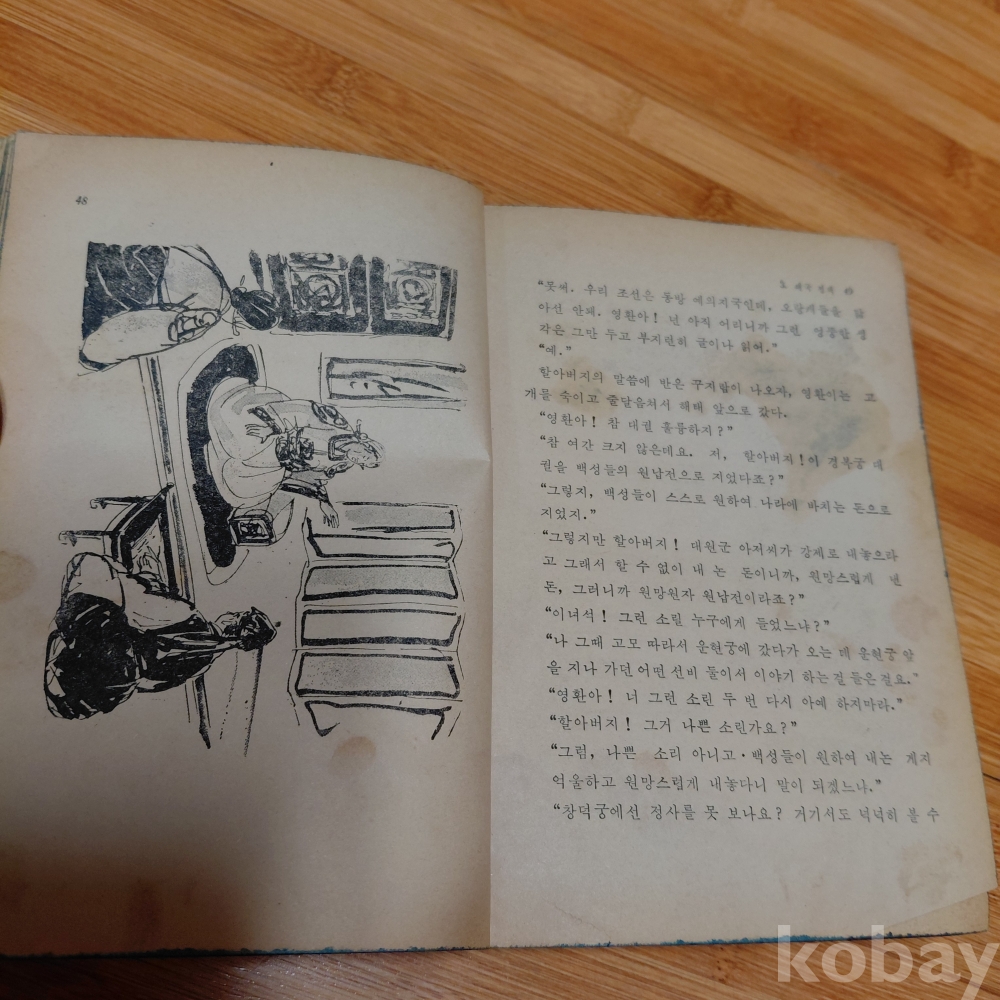 48
“못써. 우리 조선은 동방 예의지국인데, 오랑캐들을 닮
아선 안돼. 영환아! 넌 아직 어리니까 그런 엉뚱한 생
각은 그만 두고 부지런히 글이나 읽어.”
“예.”
할아버지의 말씀에 반은 꾸지람이 나오자, 영환이는 고
개를 숙이고 줄달음쳐서 해태 앞으로 갔다.
“영환아! 참 대궐 훌륭하지?”
“참 여간 크지 않은데요. 저, 할아버지! 이 경복궁 대
궐을 백성들의 원납전으로 지었다죠?”
“그렇지, 백성들이 스스로 원하여 나라에 바치는 돈으로
지었지.”
“그렇지만 할아버지! 대원군 아저씨가 강제로 내놓으라
고 그래서 할 수 없이 내 논 돈이니까, 원망스럽게 낸
돈, 그러니까 원망원자 원납전이라죠?”
“이녀석! 그런 소릴 누구에게 들었느냐?”
“나 그때 고모 따라서 운현궁에 갔다가 오는 데 운현궁 앞
을 지나 가던 어떤 선비 둘이서 이야기 하는걸 들은걸요.”
“영환아! 너 그런 소린 두 번 다시 아예 하지마라.”
“할아버지! 그거 나쁜 소린가요?”
“그럼, 나쁜 소리 아니고·백성들이 원하여 내논 게지
억울하고 원망스럽게 내놓다니 말이 되겠느냐.”
“창덕궁에선 정사를 못 보나요? 거기서도 넉넉히 볼 수
kobay